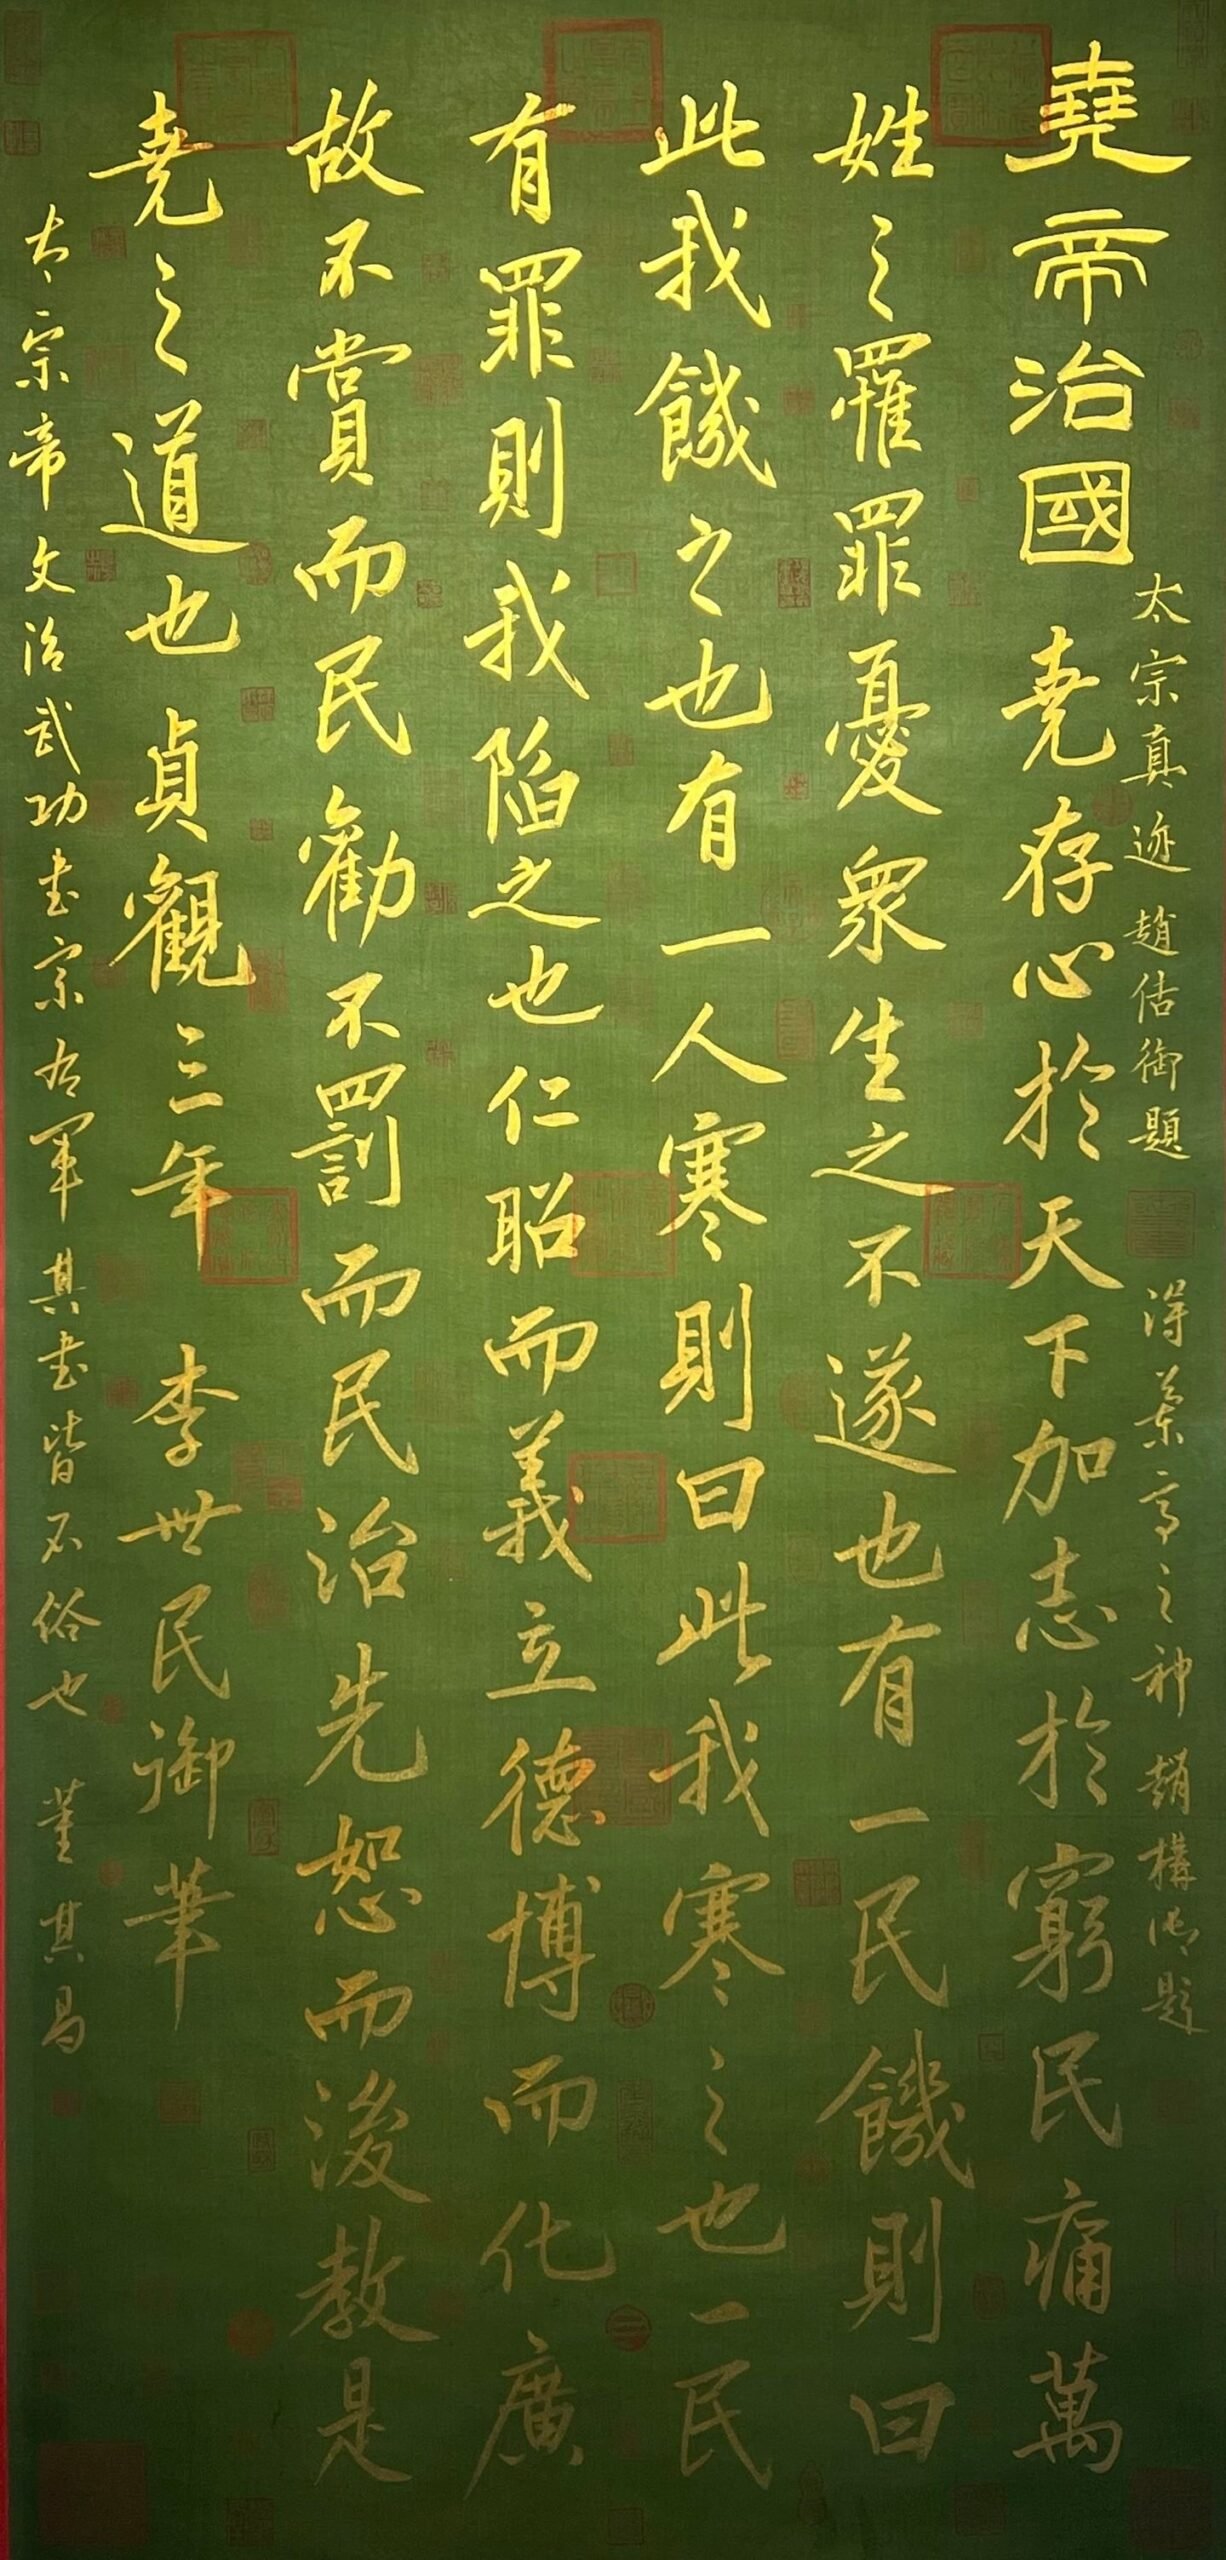 太宗真迹 趙佶御題 得蘭亭之神 趙構御題
堯帝治國 堯存心於天下加志於窮民痛萬
姓之罹罪憂衆生之不遂也有一民饑則曰
此我饑之也有一人寒則曰此我寒之也一民
有罪則我陷之也仁昭而義立德博而化廣
故不賞而民勸不罰而民治先恕而後教是
堯之道也貞觀三年 李世民御筆
太宗帝文治武功書宗右軍其書皆不俗也 董其昌